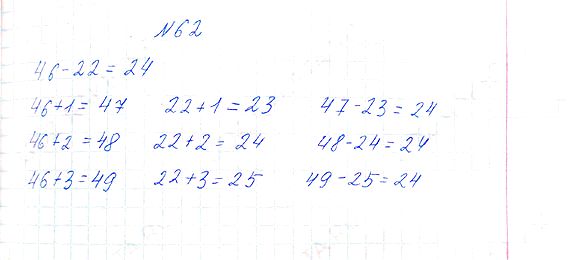 №62
46-22=24
46+1=47 22+1=23 47-23=24
46+2=48 22+2=24 48-24=24
46+3=49 22+3=25 49-25=24